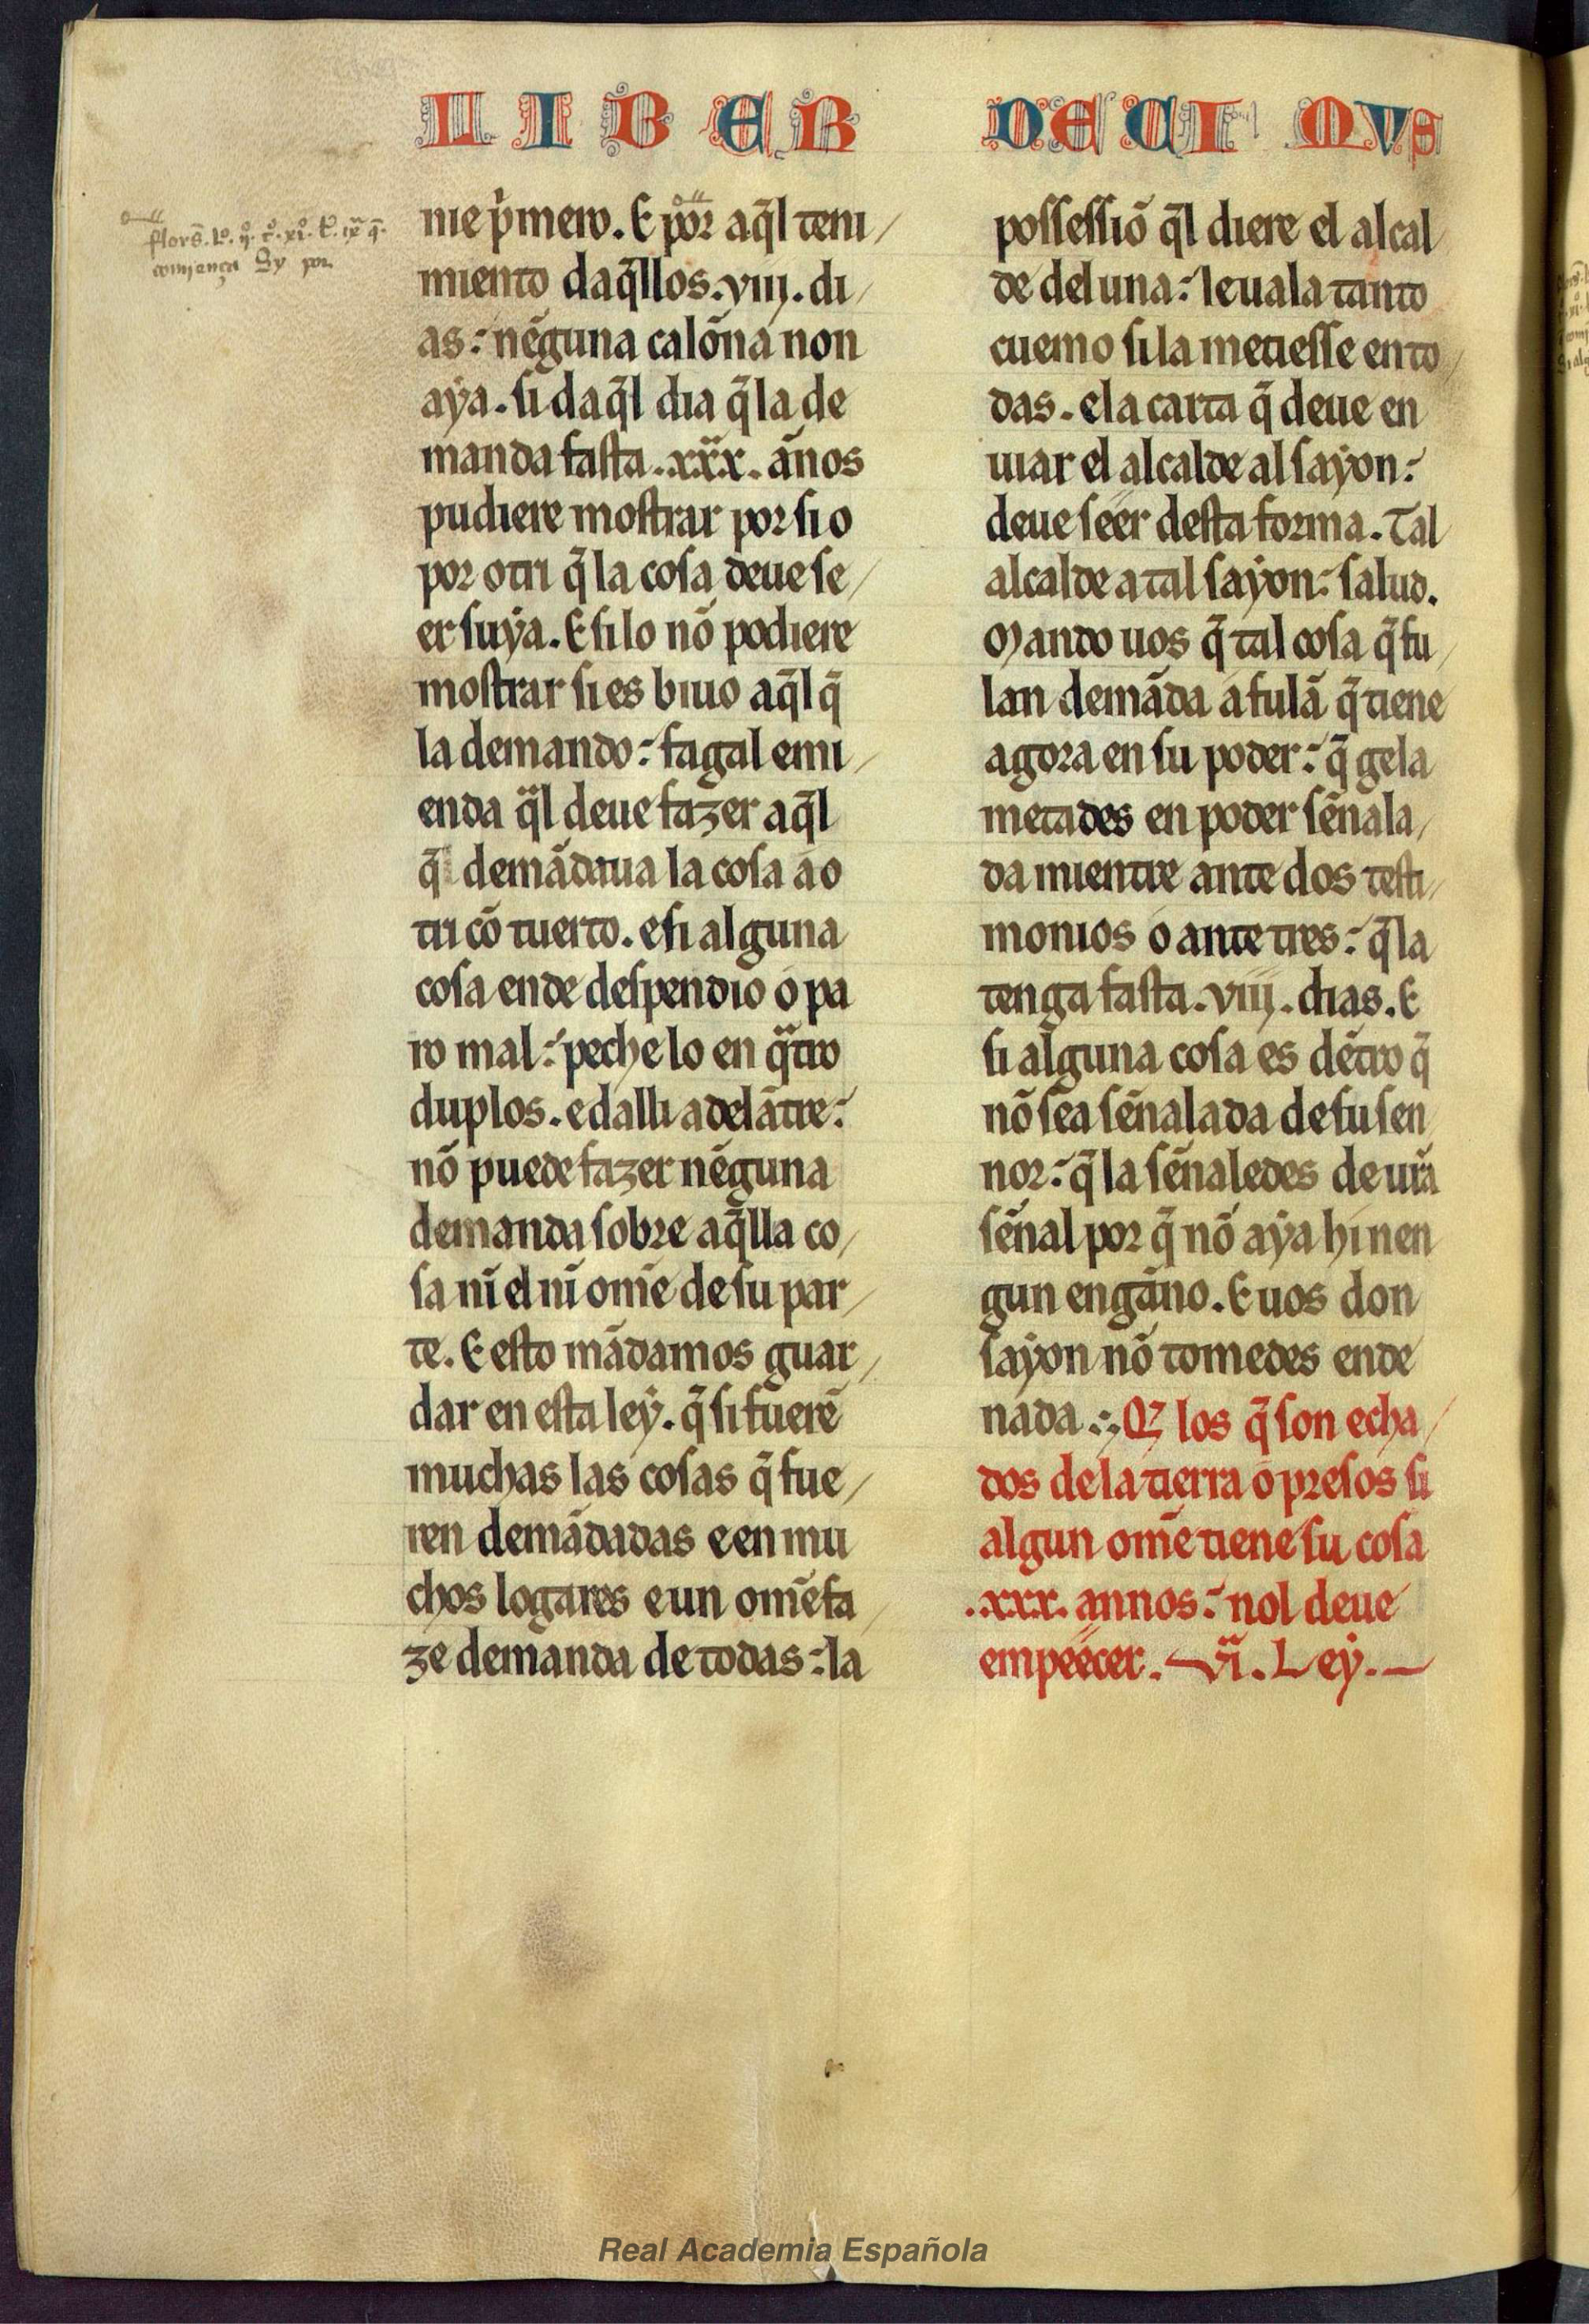 LIBER DECIMUS
nie p'mero. E por aq̃l teni/
miento daq̃llos .viij. di/
as: nẽguna calõna non
aẏa. si daq̃l dia q̃ la de
manda fasta .xxx. ãnos
pudiere mostrar por si o
por otri q̃ la cosa deue se/
er suẏa. E si lo nõ podiere
mostrar si es biuo aq̃l q̃
la demando: fagal emi/
enda q̃l deue fazer aq̃l
q̃ demãdaua la cosa a o
tri cõ tuerto. e si alguna
cosa ende despendio o pa
ro mal: peche lo en q̃tro
duplos. e dalli adelãtre:
nõ puede fazer nẽguna
demanda sobre aq̃lla co/
sa nĩ el nĩ om̃e de su par/
te. E esto mãdamos guar/
dar en esta leẏ. q̃ si fuerẽ
muchas las cosas q̃ fue/
ren demãdadas e en mu
chos logares e un om̃e fa/
ze demanda de todas: la
possessiõ q̃l diere el alcal
de del una: leuala tanto
cuemo si la metiesse en to/
das. e la carta q̃ deue en
uiar el alcalde al saẏon:
deue seer desta forma. Tal
alcalde a tal saẏon: salud.
Mando uos q̃ tal cosa q̃ fu/
lan demãda a fulã q̃ tiene
agora en su poder: q̃ gela
metades en poder sẽnala/
da mientre ante dos testi/
monios o ante tres: q̃ la
tenga fasta .viij. dias. E
si alguna cosa es dẽtro q̃
nõ sea sẽnalada de su sen
nor: q̃ la sẽnaledes de ur̃a
sẽnal por q̃ nõ aẏa hi nen
gun engãno. E uos don
saẏon nõ tomedes ende
nada. Q̃ los q̃ son echa/
dos de la tierra o presos si
algun om̃e tiene su cosa
.xxx. annos: nol deue
empeecer. vi. Leẏ.
Real Academia Española